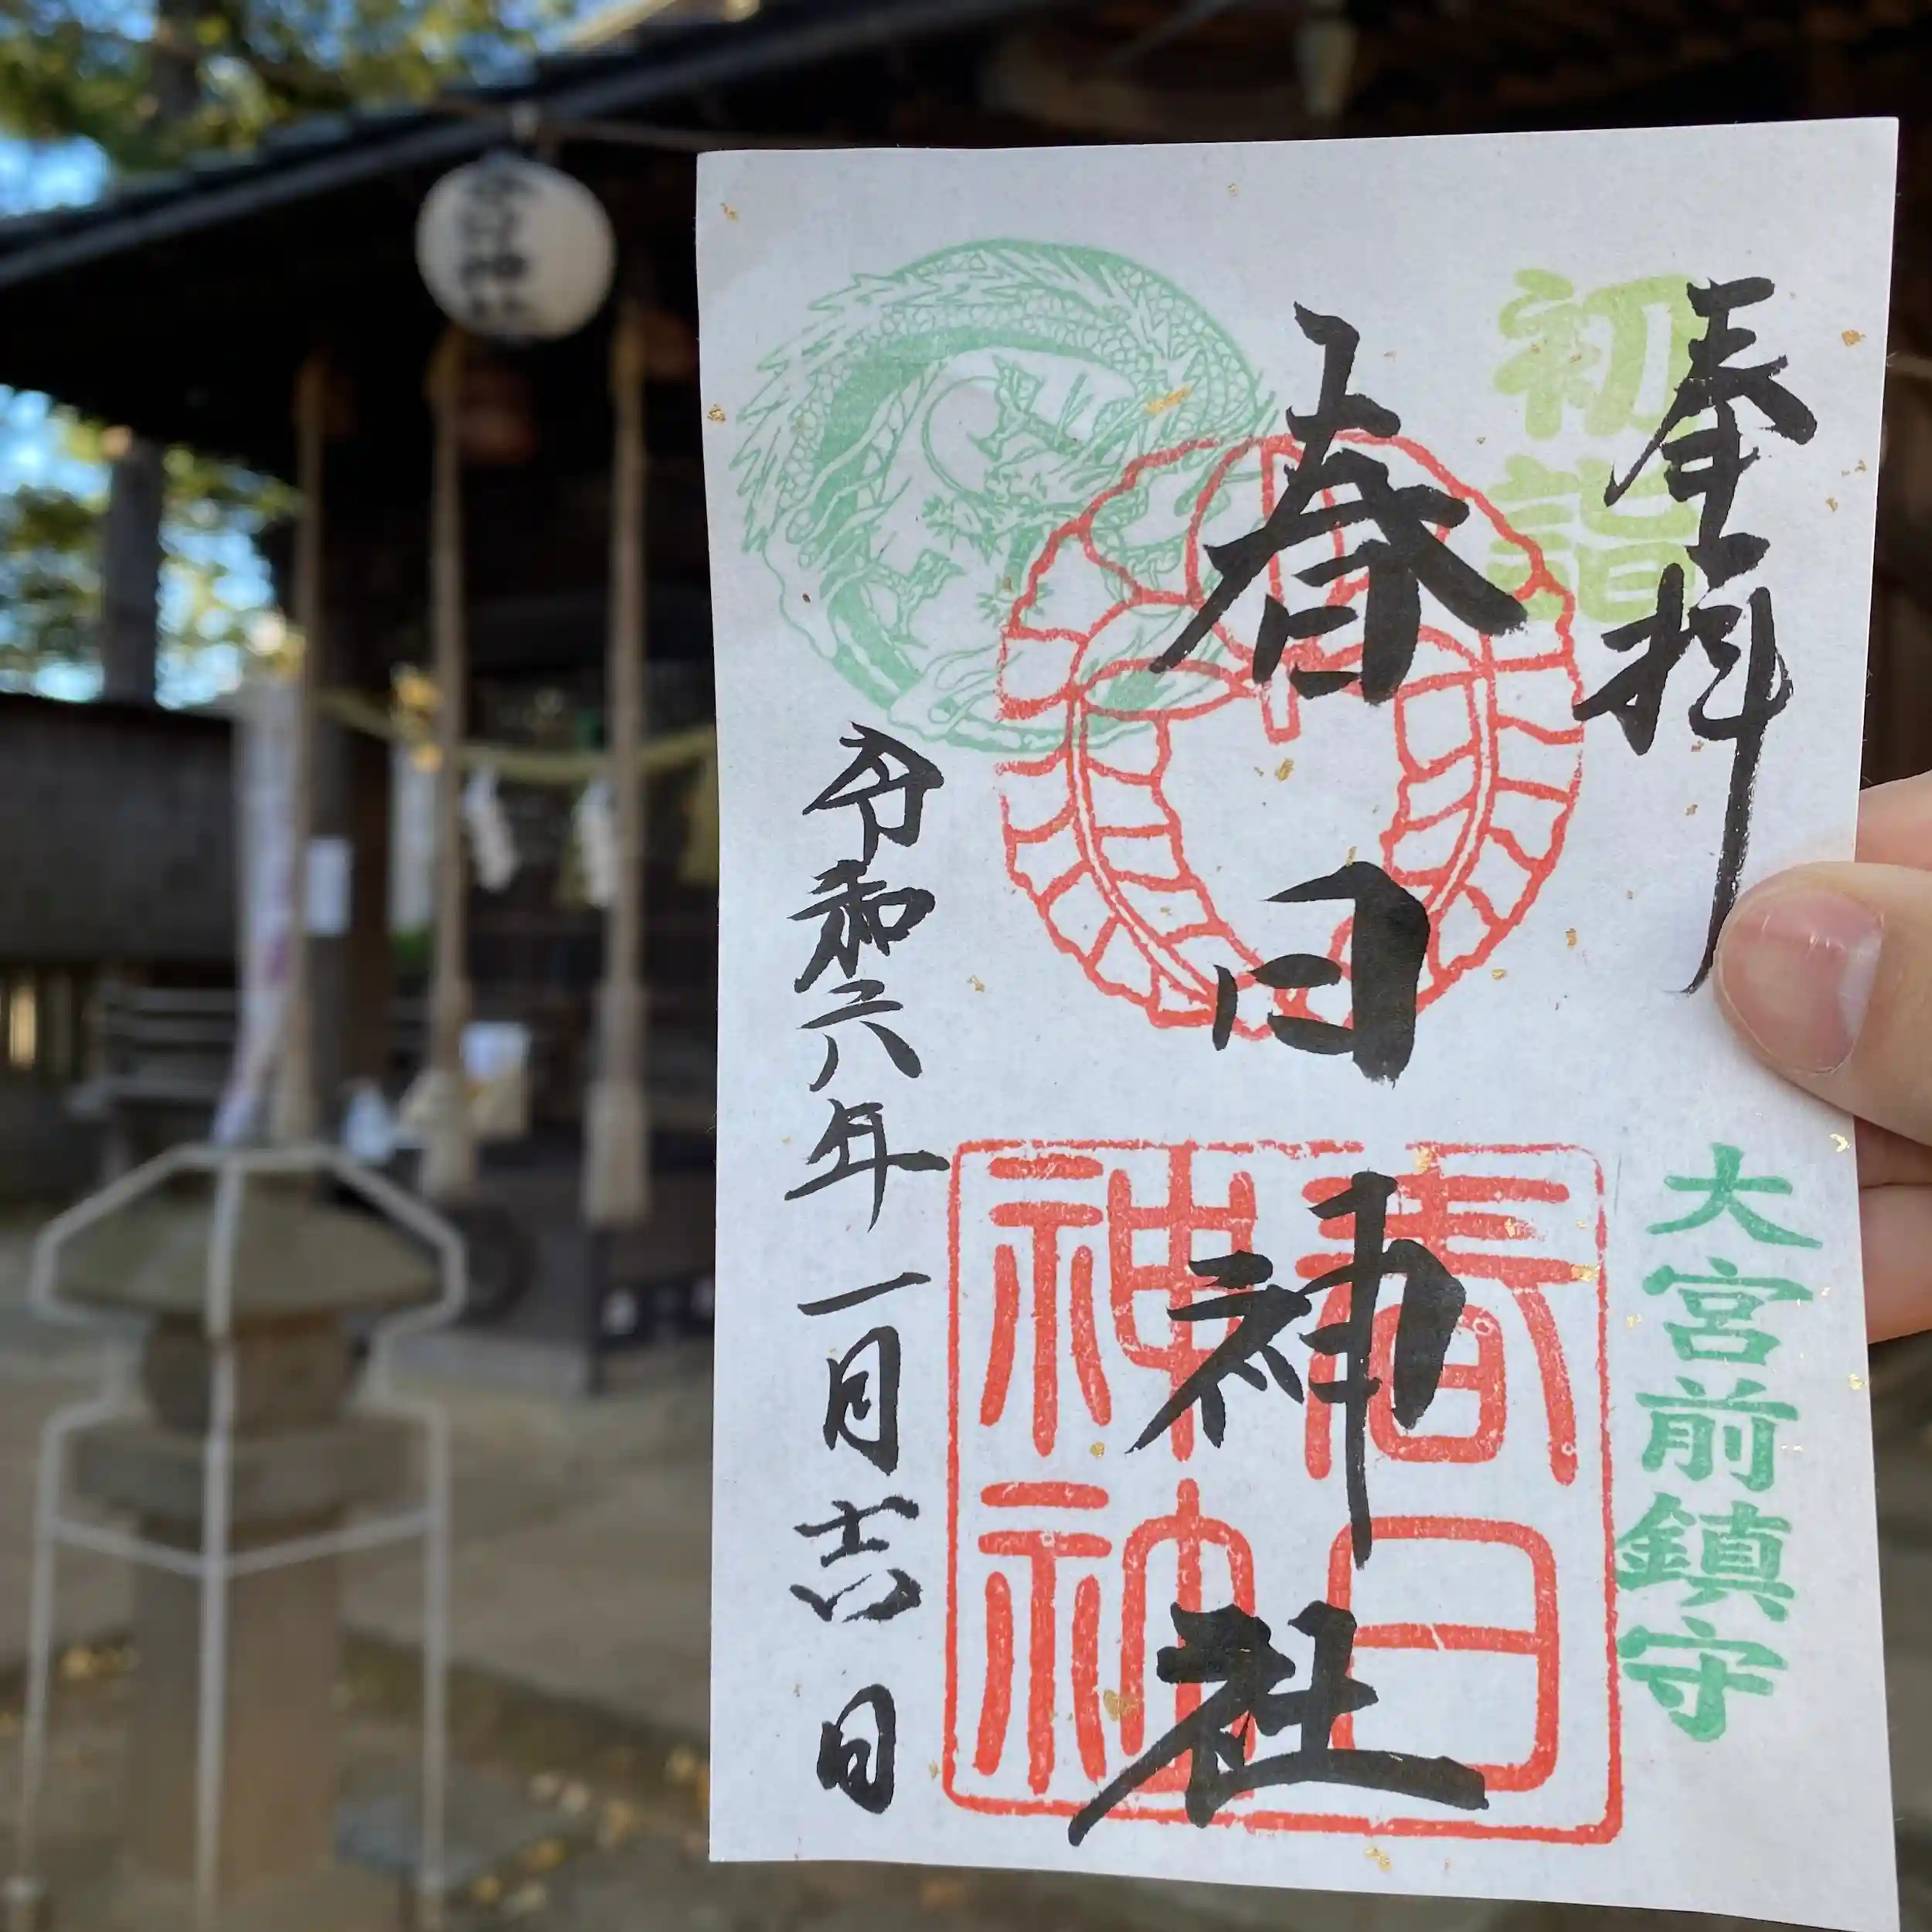 奉拝
初詣
大宮前鎮守
春日神社
春日
神社
令和六年一月十六日
春日神社